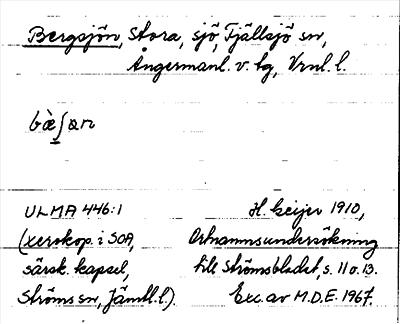 Bergsjön, Stora, sjö, Fjällsjö sn,
Ångermanl. v. tg, Vrnl. l.
bæ̀ʃan
ULMA 446:1
H. Geijer 1910,
(xerokop. i SOA,
Ortnamnsundersökning
särsk. kapsel,
till Strömsbladet, s. 11 o. 13.
Ströms sn, Jämtl. l).
Exc. av M.D.E. 1967.